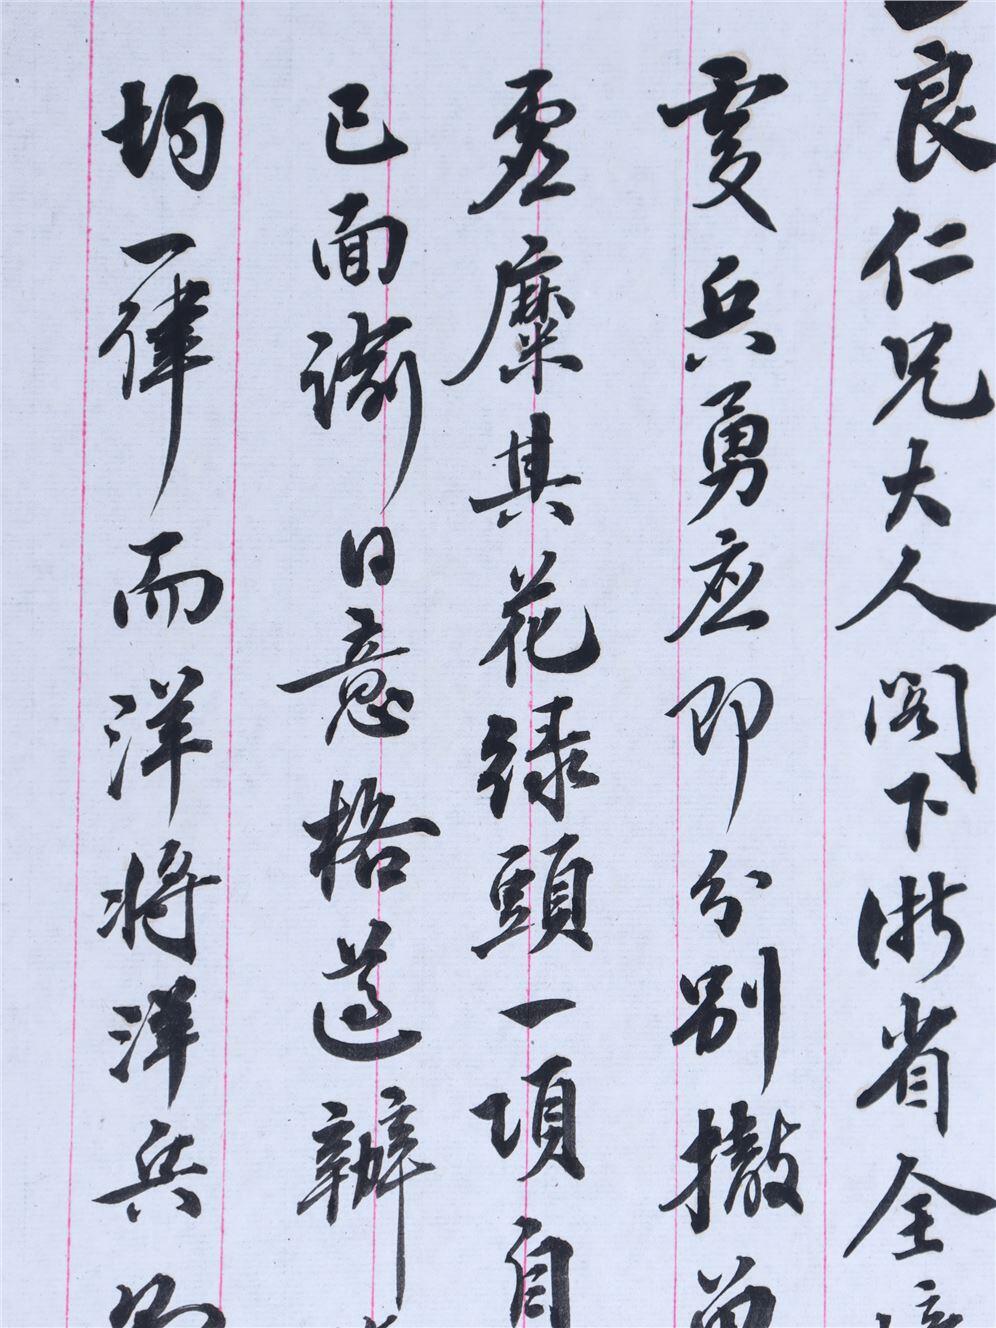 良仁兄大人閣下浙省全
處兵勇应即分別撤
虛糜其花綠頭一項自
已面諭日意格遵辦
均一律而洋將洋兵